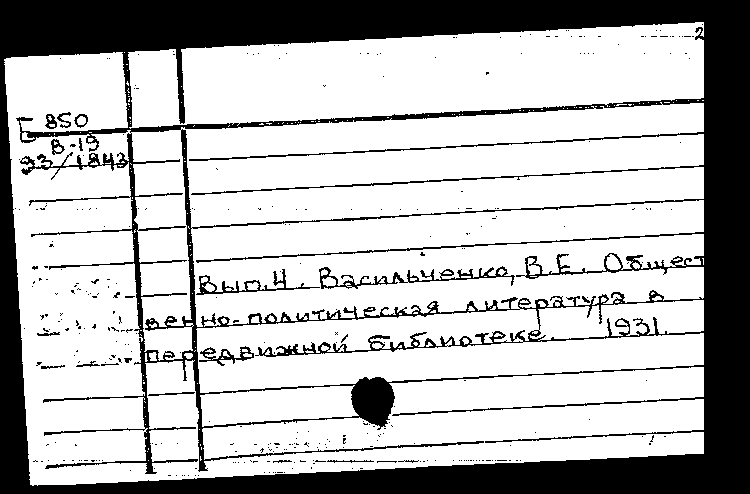 2
Е 850
В-19
93/1843
Вып.4. Васильченко, В.Е. Общест
венно-политическая литература в
передвижной библиотеке. 1931.